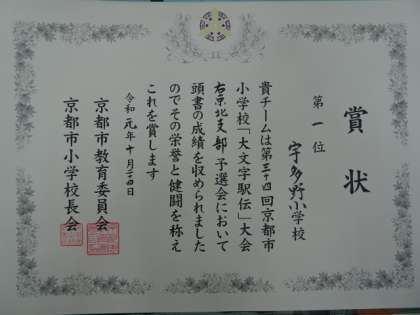 賞状
第一位
宇多野小学校
貴チームは第三十四回京都市
小学校「大文字駅伝」大会
右京北支部予選会において
頭書の成績を収められました
のでその栄誉と健闘を称え
これを賞します
令和元年十月二四日
京都市教育委員会
京都市小学校長会